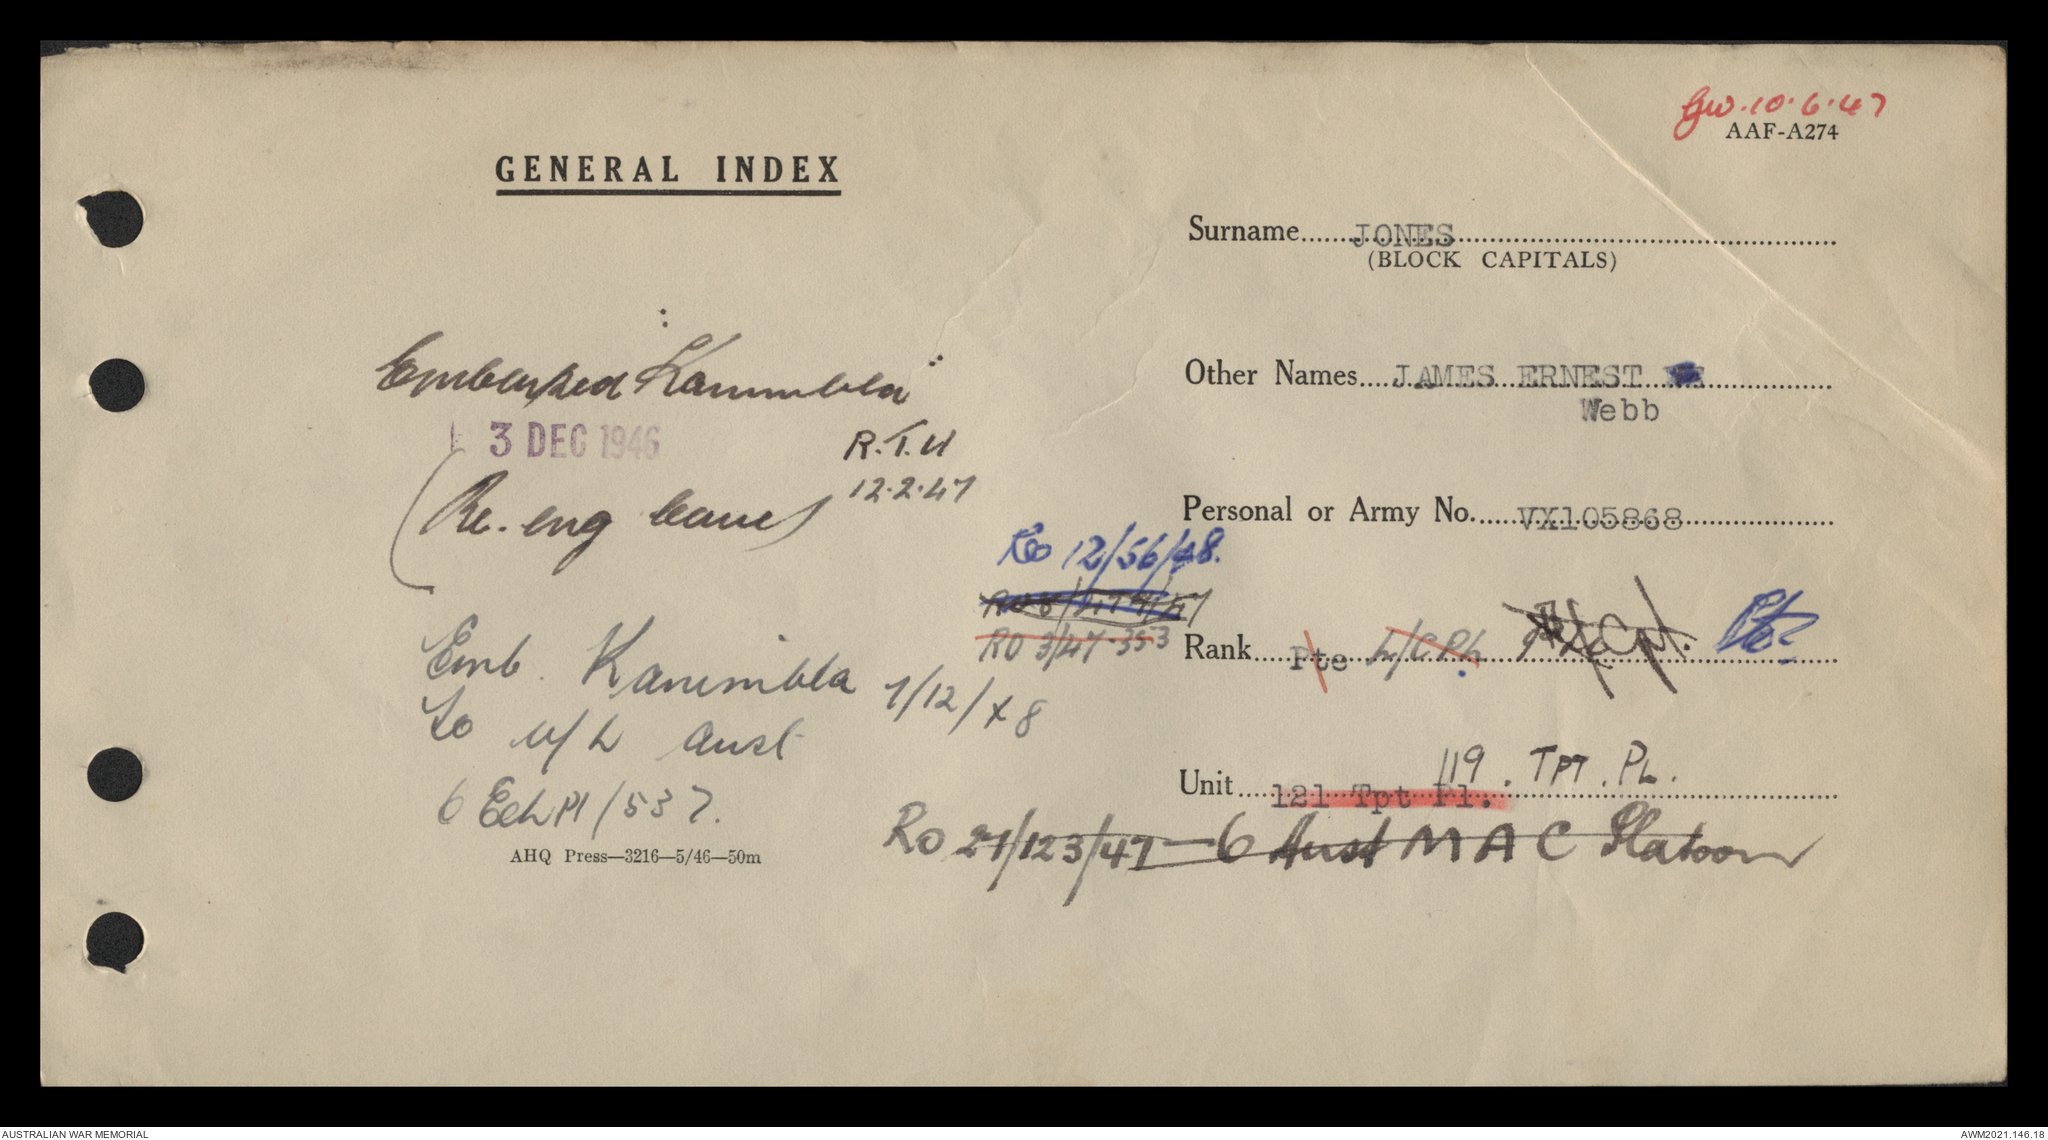 GW.10.6.47
AAF-A274
GENERAL INDEX
Surname JONES
(BLOCK CAPITALS)
Other Names JAMES ERNEST
Webb
Personal or Army No. VX105868
Embarked "Kanimbla"
3 DEC 1946
R.T.U
12.2.47
(Re.eng leave)
Ro 12/56/48.
RO 3/47-353
Rank Pte L/CPL Cpl. Pte
Emb. Kanimbla 7/12/48
to u/k Aust
6 Ech Pl/537.
119. TPT. PL.
Unit 121 Tpt Pl.
Ro 27/123/47-6 Aust M A C Platoon
AHQ Press—3216—5/46—50m
AUSTRALIAN WAR MEMORIAL
AWM2021.146.18